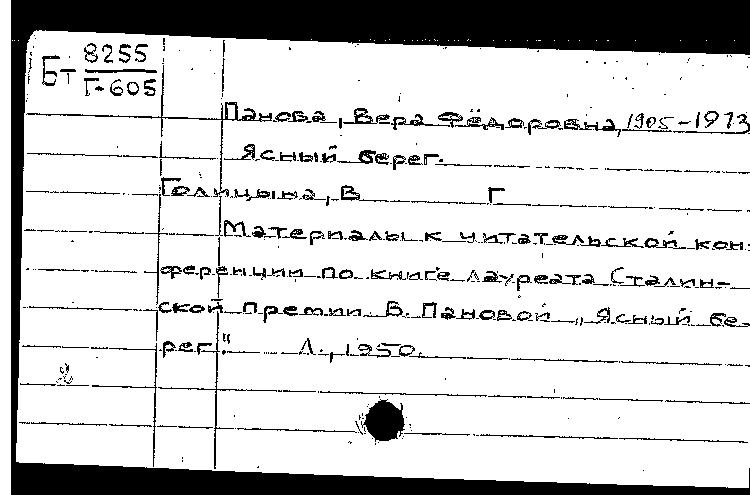 Бт 8255
Г-605
Панова, Вера Фёдоровна, 1905-1973
Ясный берег.
Голицына, В Г
Материалы к читательской кон-
ференции по книге лауреата Сталин-
ской премии В. Пановой „Ясный бе-
рег". Л., 1950.
2